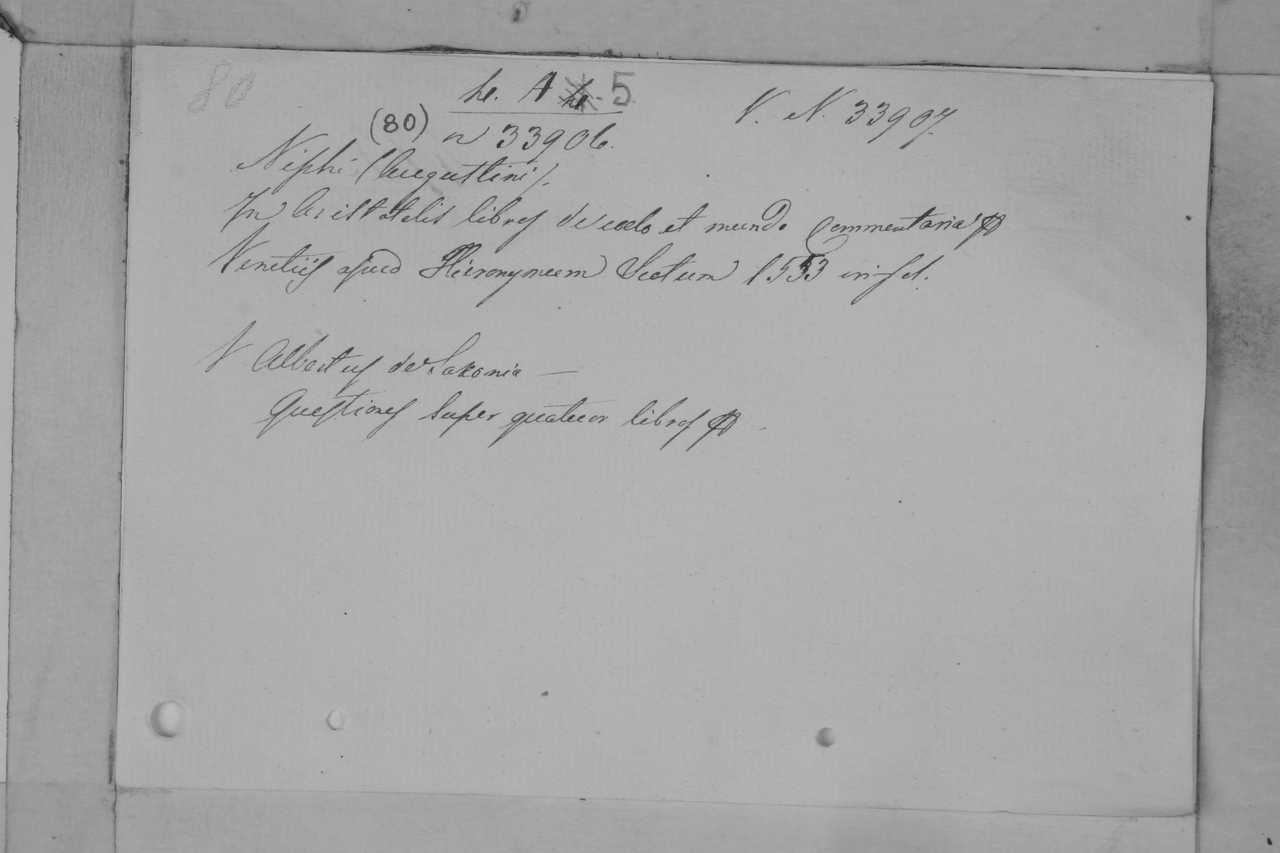 80
he. A he. 5
V. N. 33907.
(80) n 33906.
Niphi (Augustini).
In Aristotelis libros de coelo et mundo Commentaria
Venetiis apud Hieronymum Scotum 1553 in fol.
V Albertus de Saxonia —
Questiones super quatuor libros